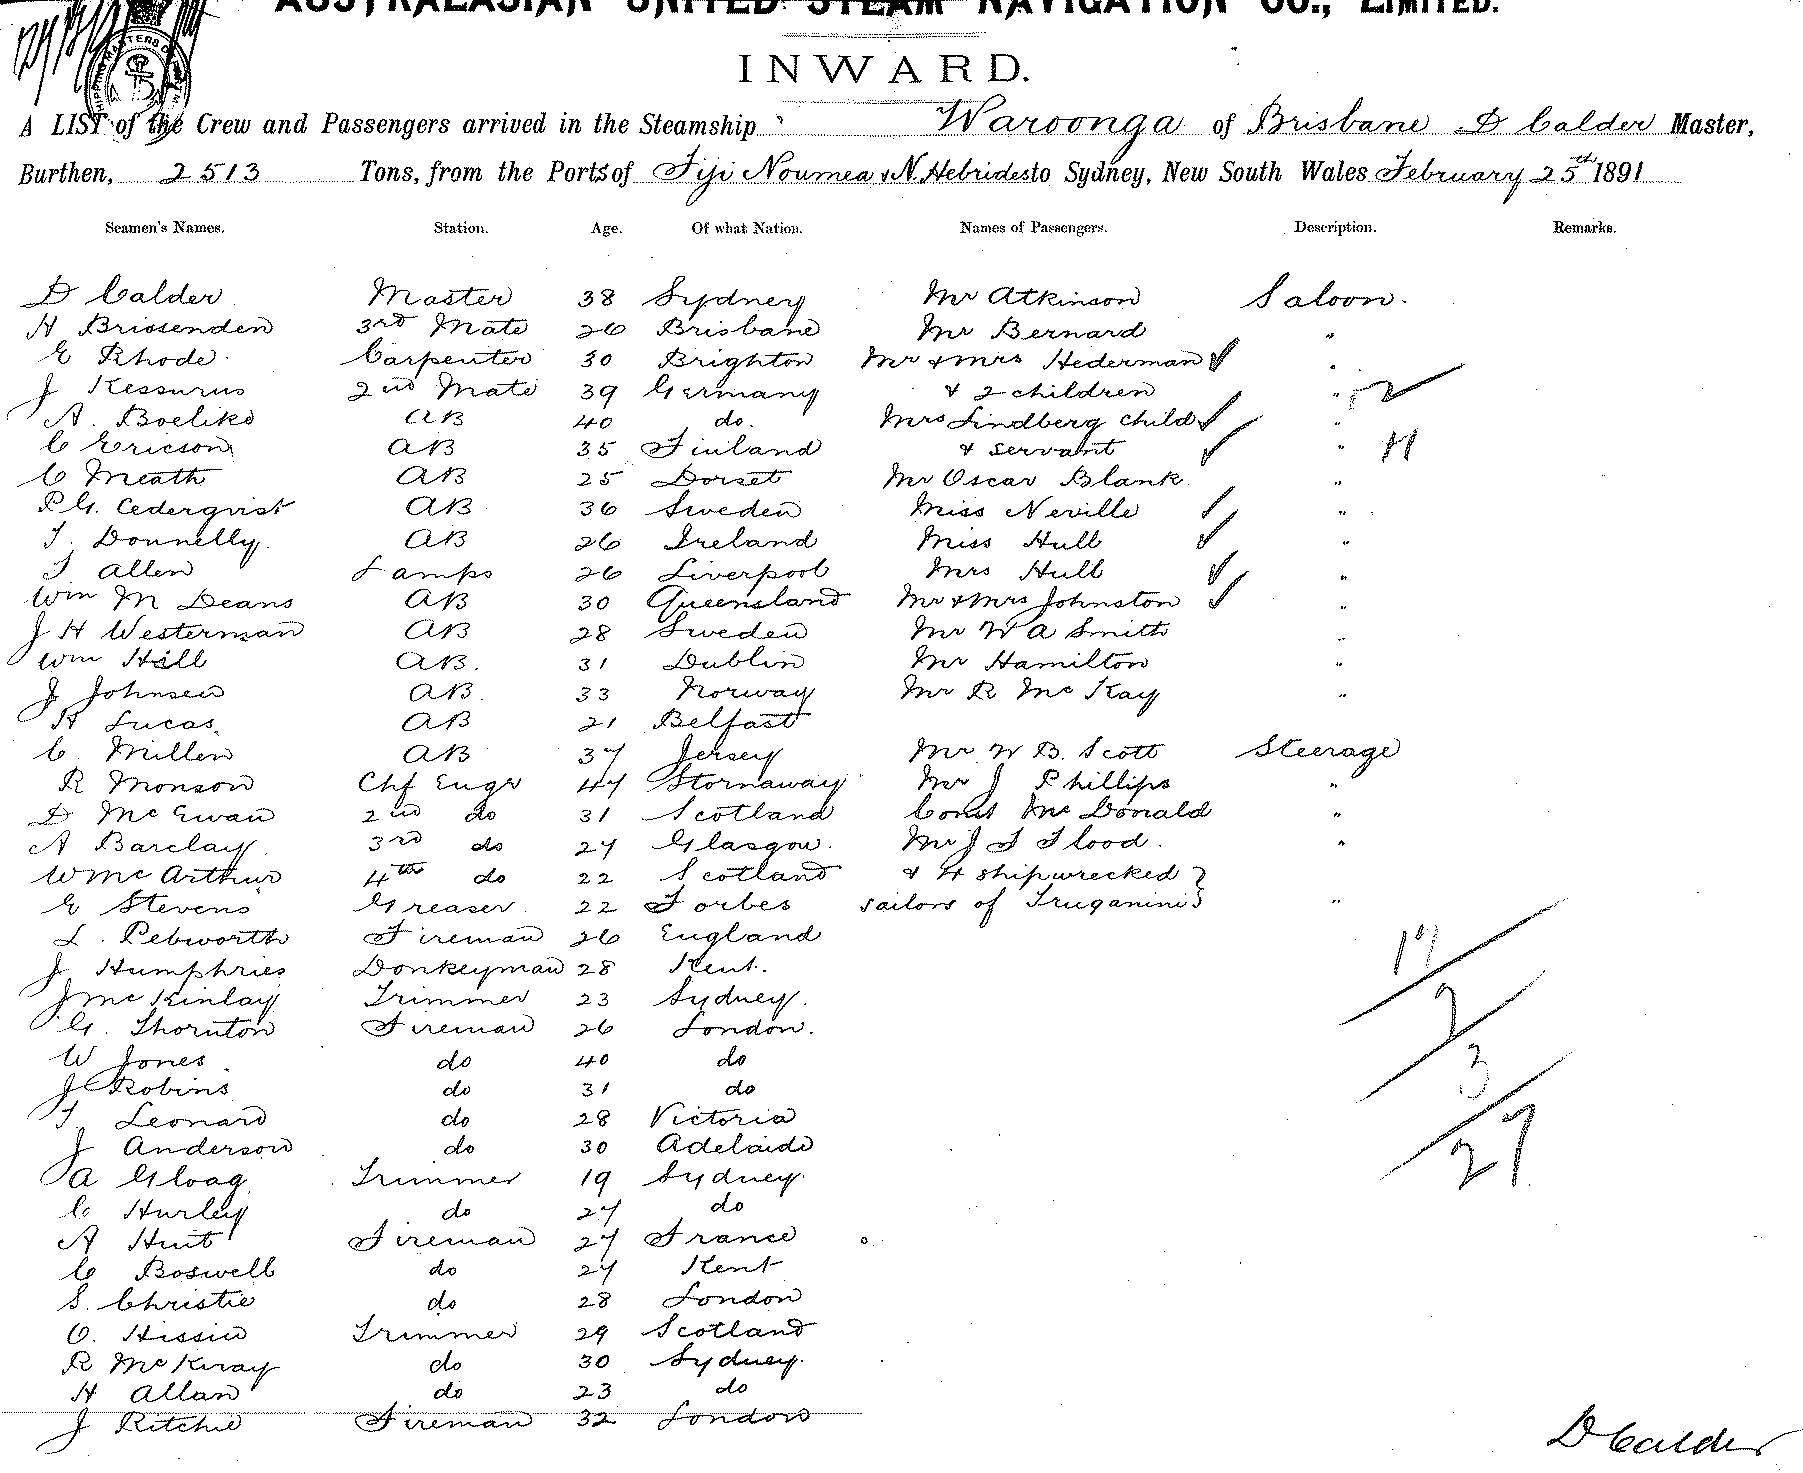 AUSTRALASIAN UNITED STEAM NAVIGATION CO., LIMITED.
INWARD.
A LIST of the Crew and Passengers arrived in the Steamship Waroonga of Brisbane D Calder Master,
Burthen, 2513 Tons, from the Ports of Fiji Noumea & N. Hebrides to Sydney, New South Wales February 25th 1891
Seamen's Names. Station. Age. Of what Nation. Names of Passengers. Description. Remarks.
D Calder Master 38 Sydney Mr Atkinson Saloon.
H Brissenden 3rd Mate 26 Brisbane Mr Bernard "
E Rhode Carpenter 30 Brighton Mr & Mrs Hederman "
J Kessurus 2nd Mate 39 Germany & 2 children " 2
A. Boelike AB 40 do. Mrs Lindberg child "
C Ericson AB 35 Finland & servant " 11
C Meath AB 25 Dorset Mr Oscar Blank "
P.G. Cederqvist AB 36 Sweden Miss Neville "
T. Donnelly. AB 26 Ireland Miss Hull "
T Allen Lamps 26 Liverpool Mrs Hull "
Wm M Deans AB 30 Queensland Mr & Mrs Johnston "
J H Westerman AB 28 Sweden Mr W A Smith "
Wm Hill AB. 31 Dublin Mr Hamilton "
J Johnsen AB. 33 Norway Mr R McKay "
H Lucas. AB 21 Belfast
C. Millen AB 37 Jersey Mr W B. Scott Steerage
R Monson Chf Engr 47 Stornaway Mr J Phillips "
D McEwan 2nd do 31 Scotland Const McDonald "
A Barclay. 3rd do 27 Glasgow. Mr J T Flood. "
W McArthur 4th do 22 Scotland & 4 shipwrecked }
E Stevens Greaser. 22 Forbes sailors of Truganini } "
L. Pebworth Fireman 26 England 19
J Humphries Donkeyman 28 Kent.
J McKinlay Trimmer 23 Sydney. 2
G. Thornton Fireman 26 London.
W Jones do 40 do 3
J Robins do 31 do
T Leonard do 28 Victoria
J Anderson do 30 Adelaide 27
A Gloag Trimmer 19 Sydney.
C Hurley do 27 do
A Huit Fireman 27 France
C Boswell do 27 Kent
S. Christie do 28 London
O. Hissin Trimmer 29 Scotland
R McKivay do 30 Sydney.
H Allan do 23 do
J Ritchie Fireman 32 London
D Calder